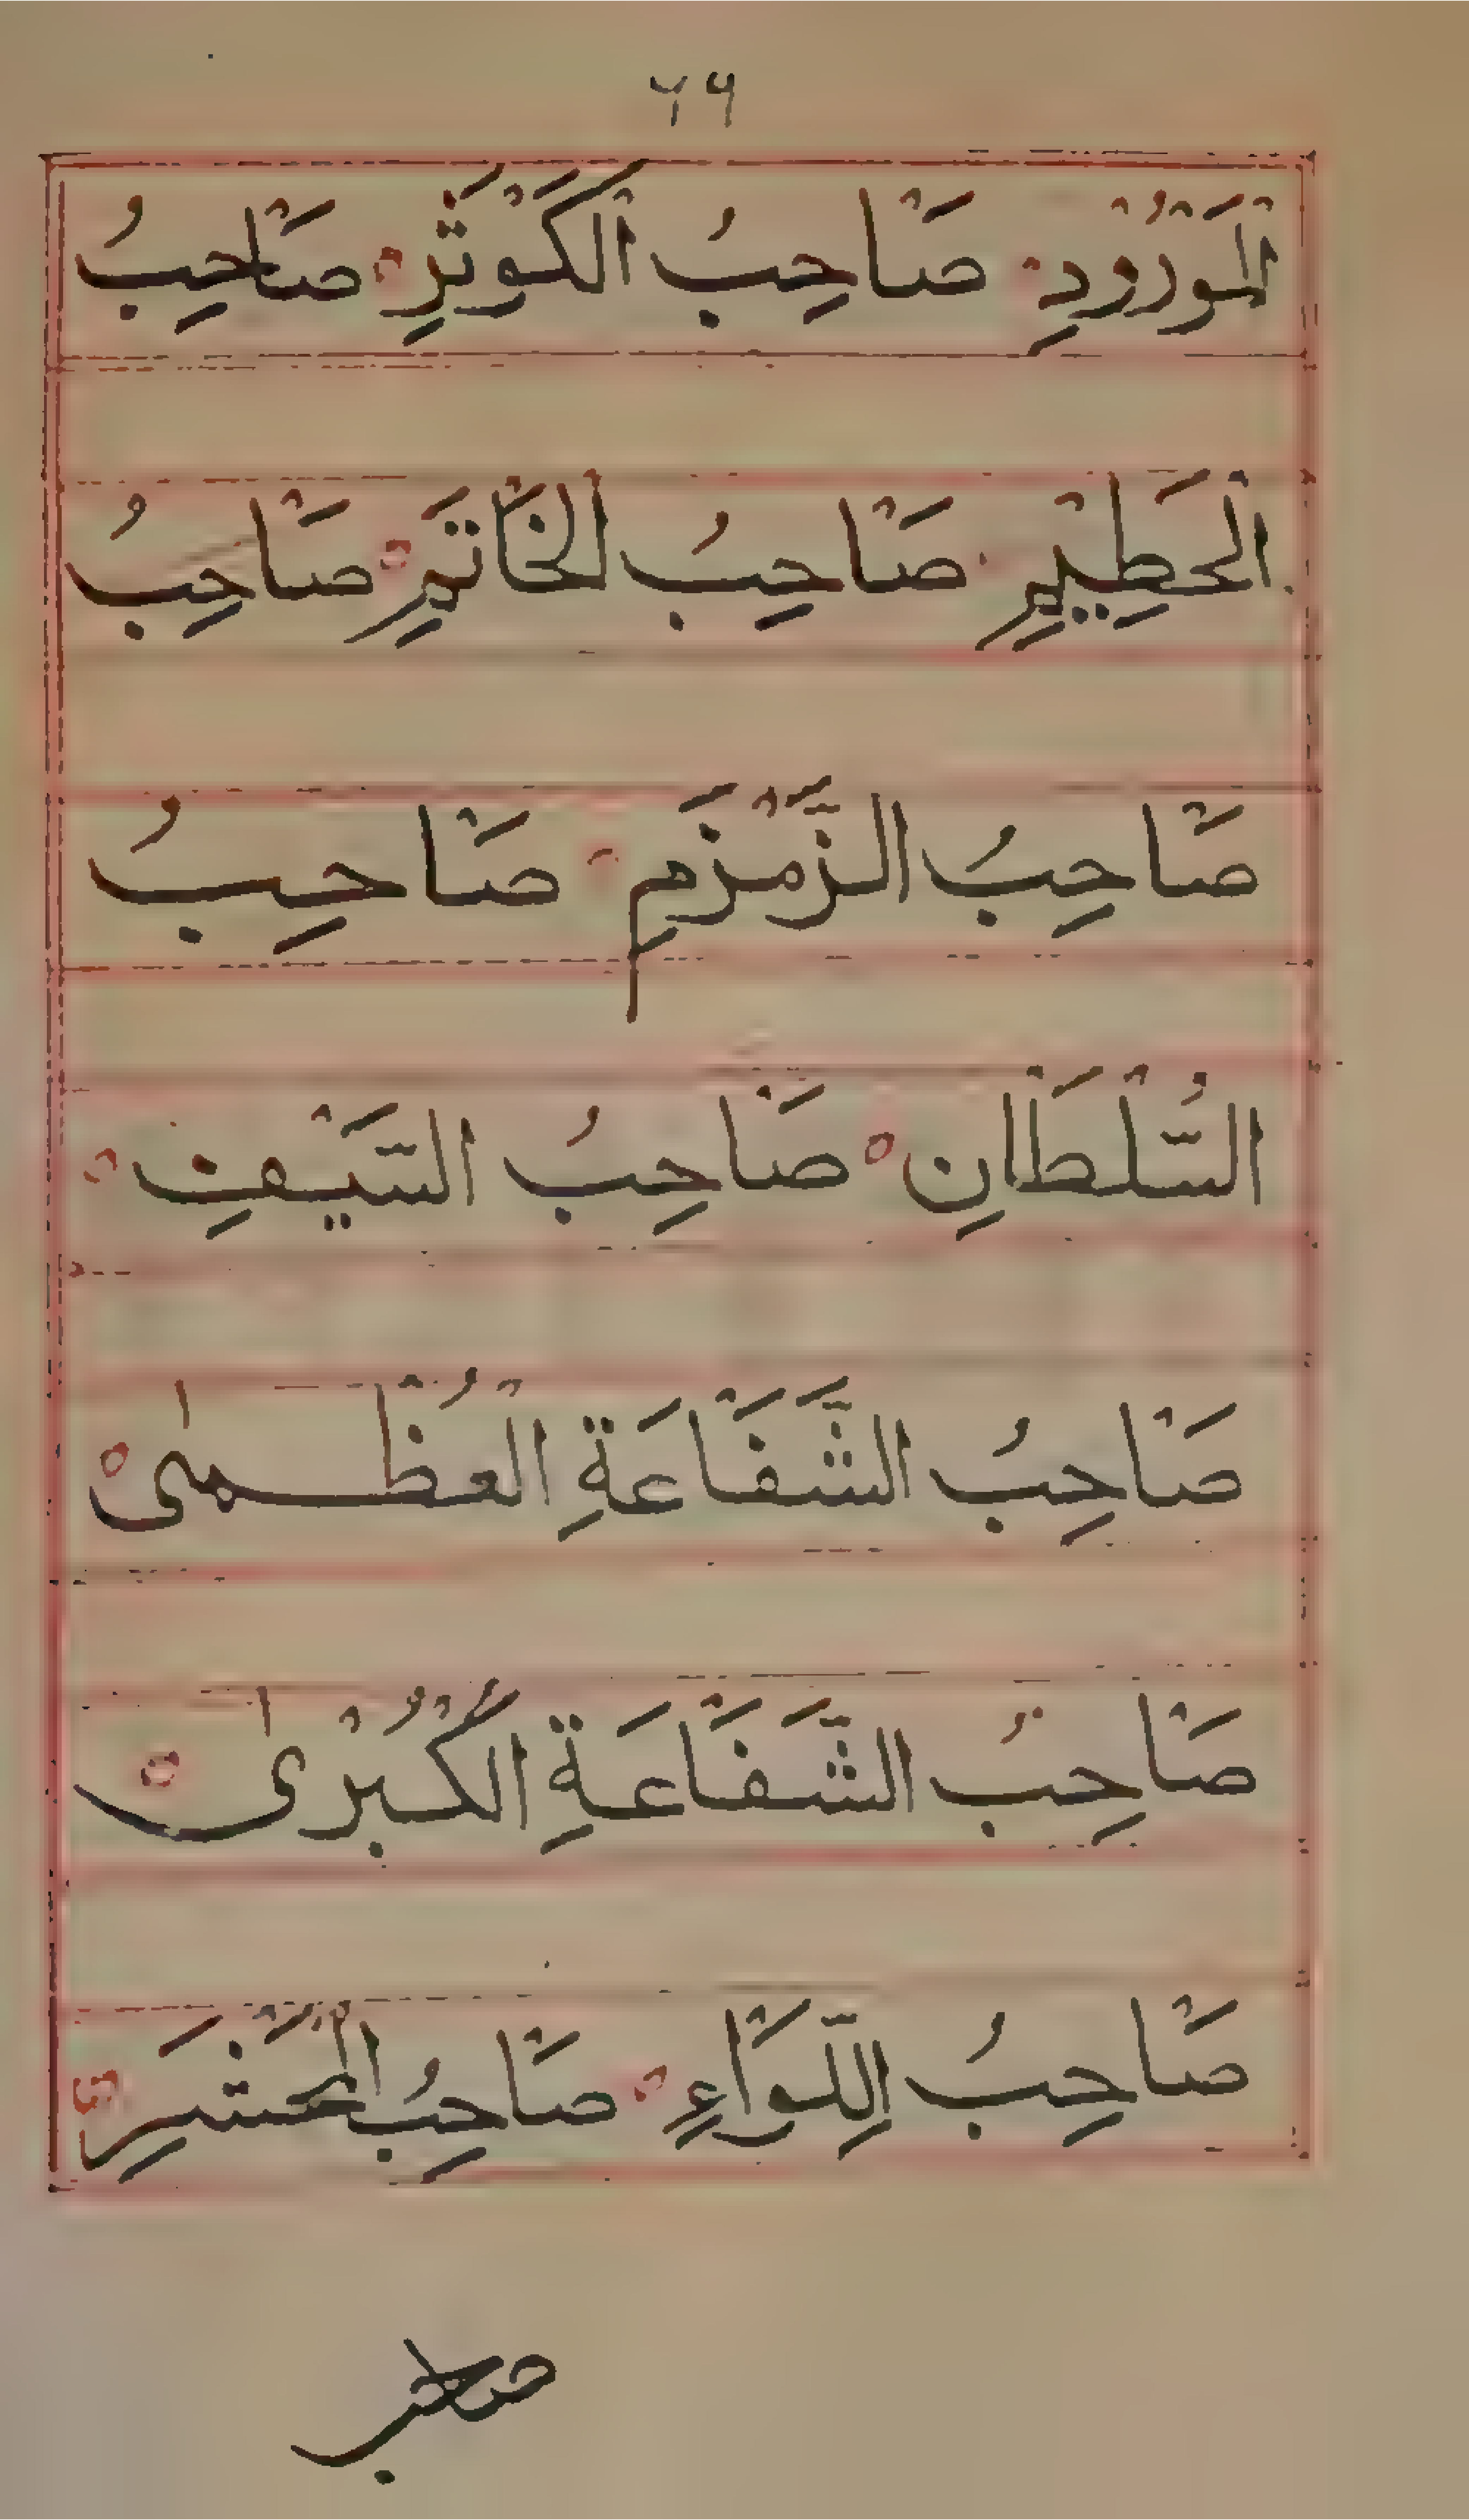 ٦٩
الْمَوْرُوْدِ صَاحِبُ الْكَوْثَرِ صَاحِبُ
الْحَطِيْمِ صَاحِبُ الْخَاتَمِ صَاحِبُ
صَاحِبُ الزَّمْزَمِ صَاحِبُ
السُّلْطَانِ صَاحِبُ السَّيْفِ
صَاحِبُ الشَّفَاعَةِ الْعُظْمٰى
صَاحِبُ الشَّفَاعَةِ الْكُبْرٰى
صَاحِبُ اللِّوَاءِ صَاحِبُ الْمَحْشَرِ
صاحب